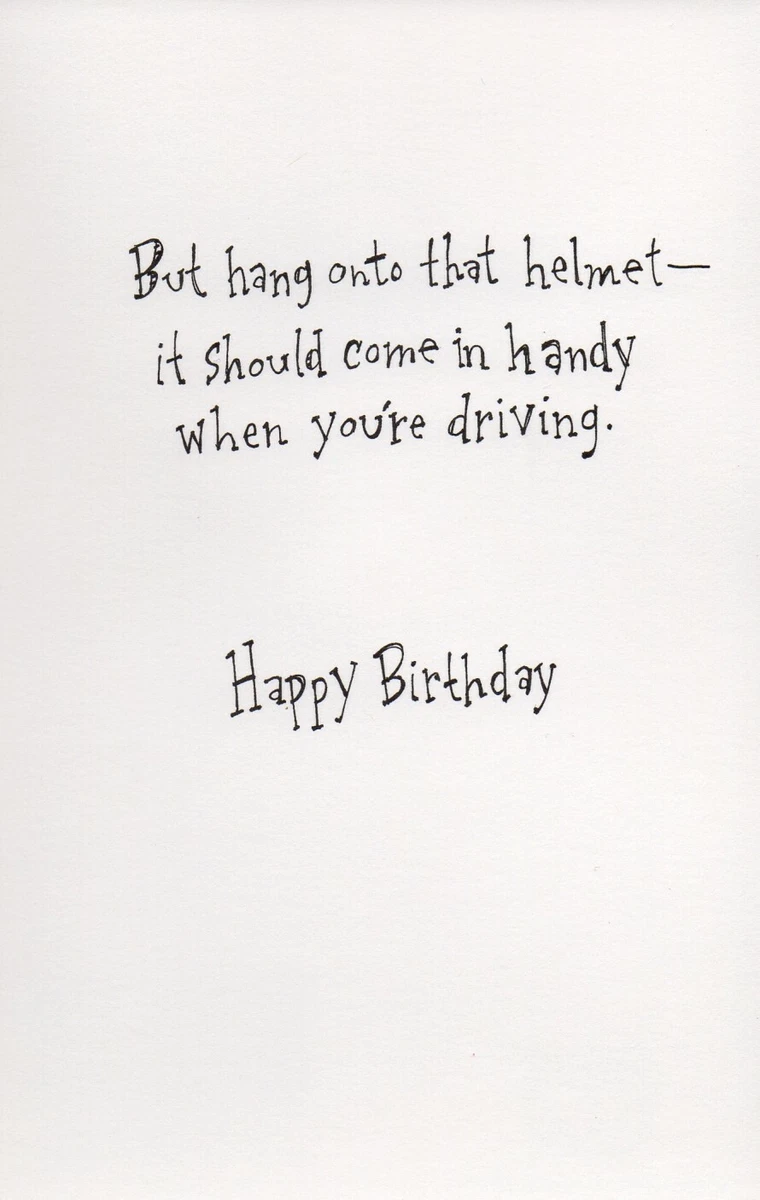 But hang onto that helmet—
it should come in handy
when you're driving.
Happy Birthday